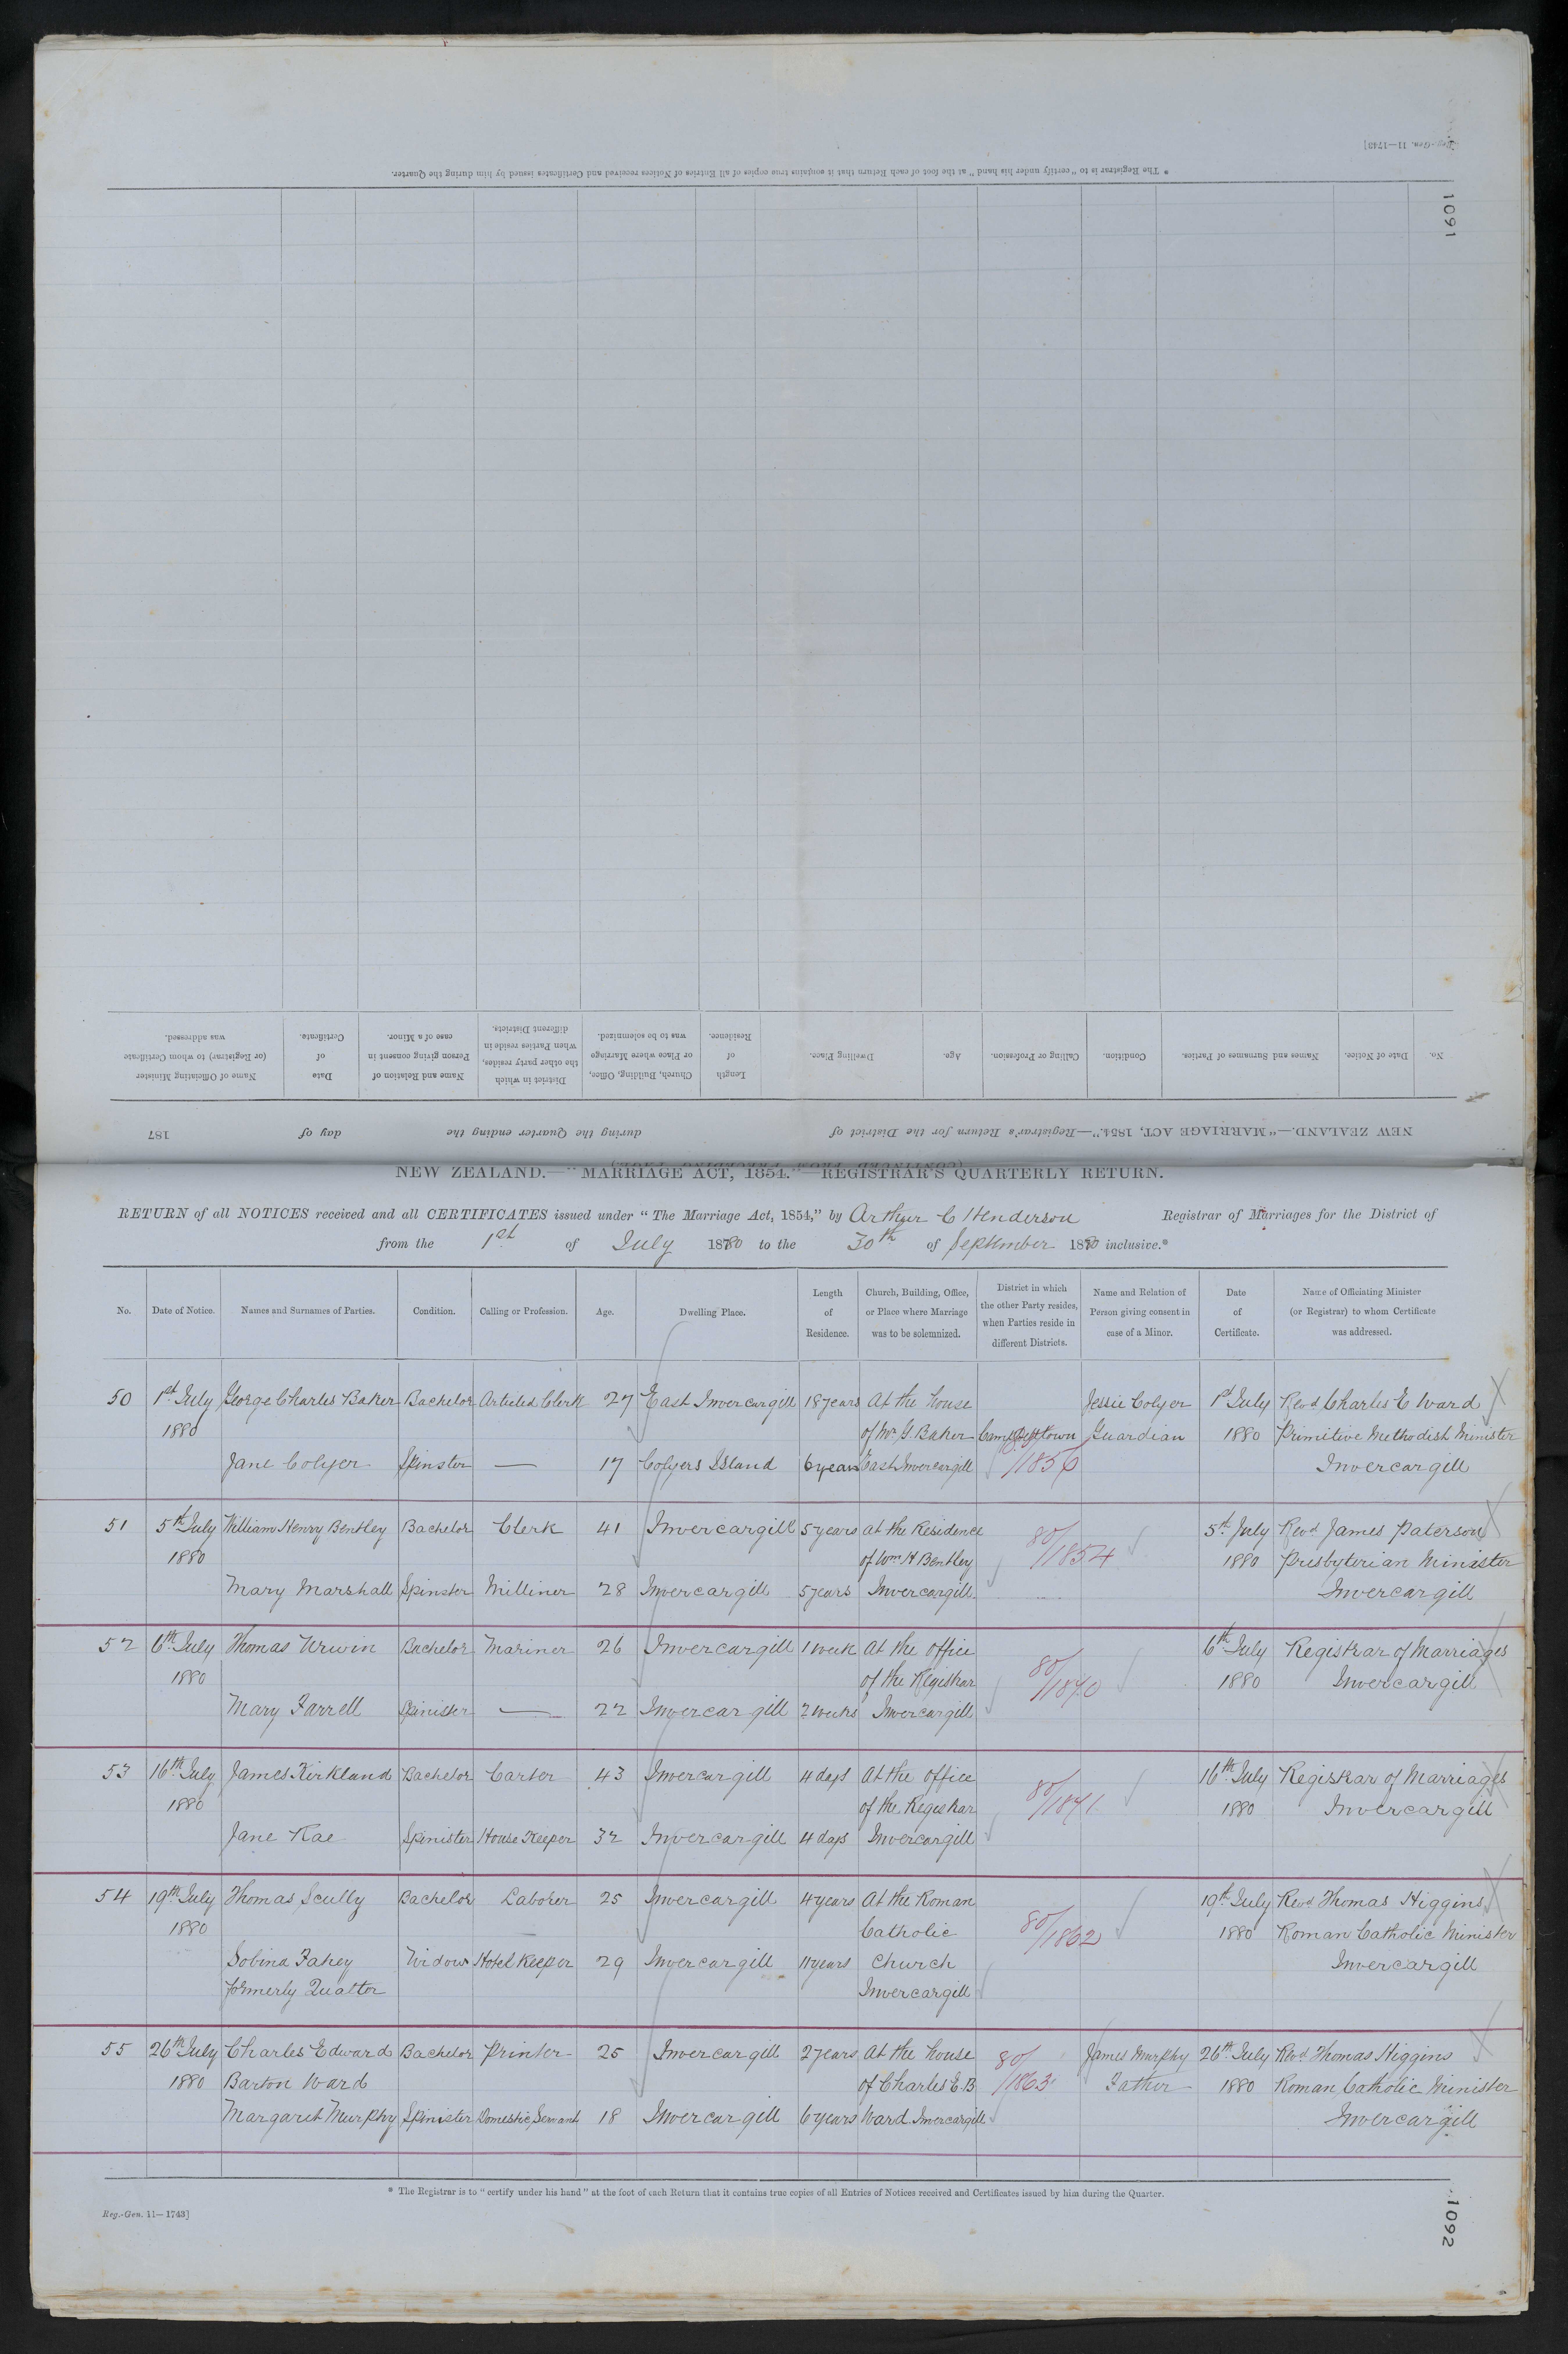 Reg.-Gen. 11—1743]
1091
* The Registrar is to "certify under his hand" at the foot of each Return that it contains true copies of all Entries of Notices received and Certificates issued by him during the Quarter.
No.
Date of Notice.
Names and Surnames of Parties.
Condition.
Calling or Profession.
Age.
Dwelling Place.
Length
of
Residence.
Church, Building, Office,
or Place where Marriage
was to be solemnized.
District in which
the other party resides,
when Parties reside in
different Districts.
Name and Relation of
Person giving consent in
case of a Minor.
Date
of
Certificate.
Name of Officiating Minister
(or Registrar) to whom Certificate
was addressed.
NEW ZEALAND.—"MARRIAGE ACT, 1854."—Registrar's Return for the District of during the Quarter ending the day of 187
(CONTINUED FROM PRECEDING PAGE)
NEW ZEALAND.—"MARRIAGE ACT, 1854."—REGISTRAR'S QUARTERLY RETURN.
RETURN of all NOTICES received and all CERTIFICATES issued under "The Marriage Act, 1854," by Arthur C Henderson Registrar of Marriages for the District of
from the 1st of July 1880 to the 30th of September 1880 inclusive.*
No.
Date of Notice.
Names and Surnames of Parties.
Condition.
Calling or Profession.
Age.
Dwelling Place.
Length
of
Residence.
Church, Building, Office,
or Place where Marriage
was to be solemnized.
District in which
the other Party resides,
when Parties reside in
different Districts.
Name and Relation of
Person giving consent in
case of a Minor.
Date
of
Certificate.
Name of Officiating Minister
(or Registrar) to whom Certificate
was addressed.
50 1st July George Charles Baker Bachelor Articled Clerk 27 East Invercargill 18 years At the house Jessie Colyer 1st July Revd Charles E Ward
1880 of Mr. G. Baker Campbelltown Guardian 1880 Primitive Methodist Minister
Jane Colyer Spinster — 17 Colyers Island 6 years East Invercargill 80/1856 Invercargill
51 5th July William Henry Bentley Bachelor Clerk 41 Invercargill 5 years at the Residence 80/1854 5th July Revd James Paterson
1880 of Wm H Bentley 1880 Presbyterian Minister
Mary Marshall Spinster Milliner 28 Invercargill 5 years Invercargill Invercargill
52 6th July Thomas Urwin Bachelor Mariner 26 Invercargill 1 week At the office 6th July Registrar of Marriages
1880 of the Registrar 80/1840 1880 Invercargill
Mary Farrell Spinister — 22 Invercargill 2 weeks Invercargill
53 16th July James Kirkland Bachelor Carter 43 Invercargill 4 days At the office 16th July Registrar of Marriages
1880 of the Registrar 80/1841 1880 Invercargill
Jane Rae Spinister House Keeper 32 Invercargill 4 days Invercargill
54 19th July Thomas Scully Bachelor Laborer 25 Invercargill 4 years At the Roman 19th July Revd Thomas Higgins
1880 Catholic 80/1862 1880 Roman Catholic Minister
Sobina Fahey Widow Hotel Keeper 29 Invercargill 11 years Church Invercargill
formerly Qualtor Invercargill
55 26th July Charles Edward Bachelor Printer 25 Invercargill 2 years At the house 80/1863 James Murphy 26th July Revd Thomas Higgins
1880 Barton Ward of Charles E. B Father 1880 Roman Catholic Minister
Margaret Murphy Spinister Domestic Servant 18 Invercargill 6 years Ward Invercargill Invercargill
* The Registrar is to "certify under his hand" at the foot of each Return that it contains true copies of all Entries of Notices received and Certificates issued by him during the Quarter.
Reg.-Gen. 11—1743]
1092